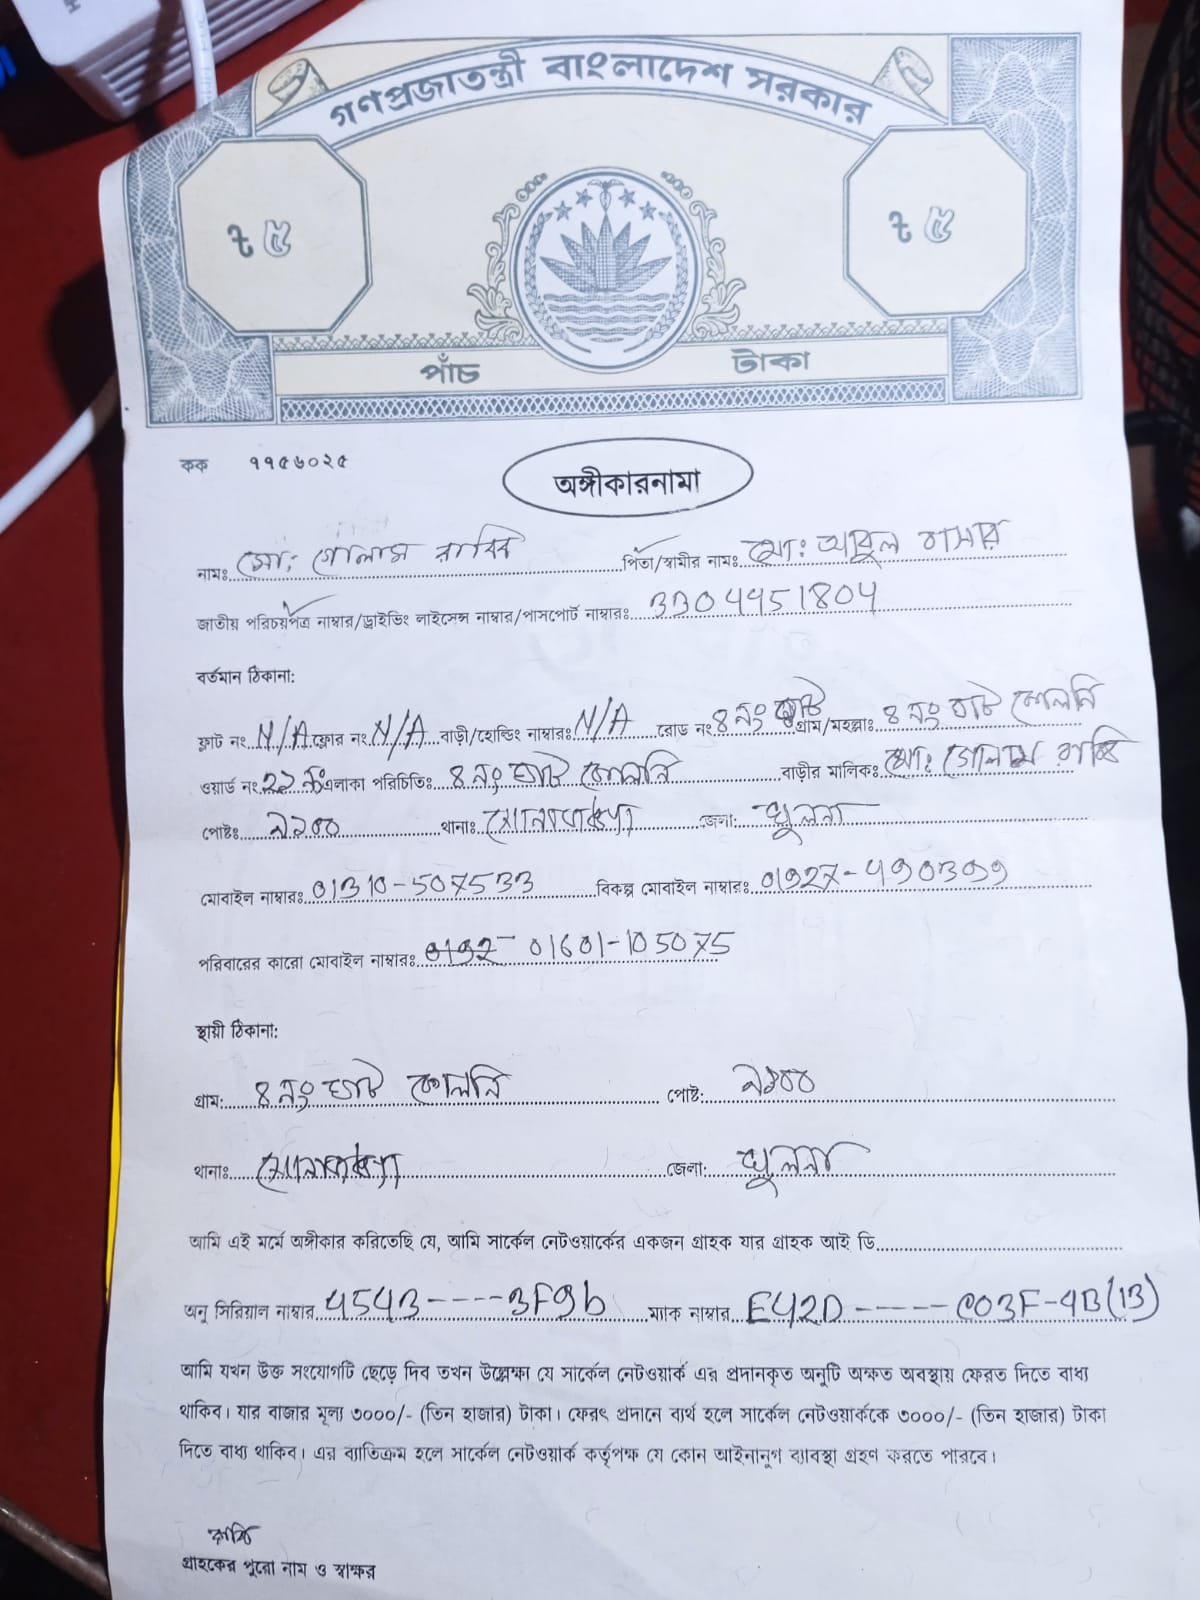 গণপ্রজাতন্ত্রী বাংলাদেশ সরকার
৳ ৫ ৳ ৫
পাঁচ টাকা
কক ৭৭৫৬০২৫
অঙ্গীকারনামা
নামঃ মো: গোলাম রাব্বি পিতা/স্বামীর নামঃ মো: আবুল বাসার
জাতীয় পরিচয়পত্র নাম্বার/ড্রাইভিং লাইসেন্স নাম্বার/পাসপোর্ট নাম্বারঃ 3304451804
বর্তমান ঠিকানা:
ফ্লাট নং N/A ফ্লোর নং N/A বাড়ী/হোল্ডিং নাম্বারঃ N/A রোড নং ৪ নং ঘাট গ্রাম/মহল্লাঃ ৪ নং ঘাট কোলনি
ওয়ার্ড নং ২১ নং এলাকা পরিচিতিঃ ৪ নং ঘাট কোলনি বাড়ীর মালিকঃ মো: গোলাম রাব্বি
পোষ্টঃ ৯১০০ থানাঃ জেলা: খুলনা
মোবাইল নাম্বারঃ 01310-507533 বিকল্প মোবাইল নাম্বারঃ 01927-490399
পরিবারের কারো মোবাইল নাম্বারঃ 01601-105075
স্থায়ী ঠিকানা:
গ্রাম: ৪ নং ঘাট কোলনি পোষ্ট: ৯১০০
থানাঃ জেলা: খুলনা
আমি এই মর্মে অঙ্গীকার করিতেছি যে, আমি সার্কেল নেটওয়ার্কের একজন গ্রাহক যার গ্রাহক আই ডি
অনু সিরিয়াল নাম্বার 4543----3F9b ম্যাক নাম্বার E42D-----C03F-4B(13)
আমি যখন উক্ত সংযোগটি ছেড়ে দিব তখন উল্লেক্ষা যে সার্কেল নেটওয়ার্ক এর প্রদানকৃত অনুটি অক্ষত অবস্থায় ফেরত দিতে বাধ্য
থাকিব। যার বাজার মূল্য ৩০০০/- (তিন হাজার) টাকা। ফেরৎ প্রদানে ব্যর্থ হলে সার্কেল নেটওয়ার্ককে ৩০০০/- (তিন হাজার) টাকা
দিতে বাধ্য থাকিব। এর ব্যাতিক্রম হলে সার্কেল নেটওয়ার্ক কর্তৃপক্ষ যে কোন আইনানুগ ব্যাবস্থা গ্রহণ করতে পারবে।
রাব্বি
গ্রাহকের পুরো নাম ও স্বাক্ষর